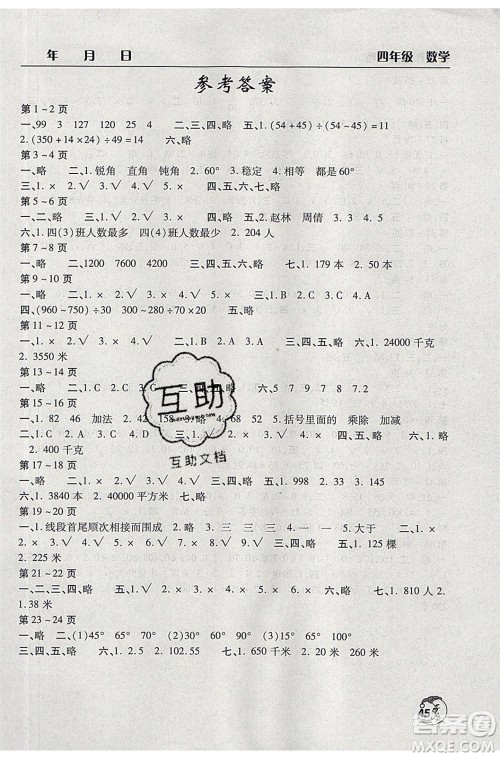 年 月 日 四年级 数学
参考答案
第1～2页
一、99 3 127 120 25 4 二、三、四、略 五、1.(54+45)÷(54-45)=11
2.(350+14×21)÷49=14 六、略
第3～4页
一、略 二、1.锐角 直角 钝角 2.60° 3.稳定 4.相等 都是60°
三、1.× 2.√ 3.√ 4.× 四、五、六、七、略
第5～6页
一、二、略 三、1.√ 2.× 3.× 四、略 五、1.3 2.赵林 周倩 3.3 4.5
六、1.四(3)班人数最多 四(4)班人数最少 2.204人
第7～8页
一、略 二、1200 7600 4000 三、四、五、六、略 七、1.179本 2.50本
第9～10页
一、略 二、1.B 2.A 3.C 三、1.√ 2.√ 3.× 4.√ 5.×
四、(960-750)÷(650-580)÷70×20 五、略
第11～12页
一、略 二、1.× 2.√ 3.× 4.√ 三、1.B 2.A 四、五、略 六、1.24000千克
2.3550米
第13～14页
一、略 二、1.D 2.C 3.G 四、1.5 7 7 9 8 五、六、略
第15～16页
一、1.82 46 加法 2.42 158 3.略 4.68 52 5.括号里面的 乘除 加减
二、1.C 2.A 3.B 三、√ × √ × √ 四、五、六、略 七、1.×
2.400千克
第17～18页
一、略 二、1.× 2.√ 3.× 三、四、略 五、1.998 2.33 3.25
六、1.3840本 2.40平方米 七、略
第19～20页
一、1.线段首尾顺次相接而围成 2.× 3.× 4.× 5.大于 二、×
× √ √ √ × √ 三、四、略 五、1.125棵
2.225米
第21～22页
一、二、三、四、略 五、1.√ 2.× 3.× 4.√ 六、略 七、1.× 2.×
2.1.38米
第23～24页
一、略 二、(1)45° 65° (2)35° 90° (3)60° 60° 60°
三、四、五、略 六、1.53 2.102.55 七、略
互助
互助文档
45
答案圈
MXQE.COM